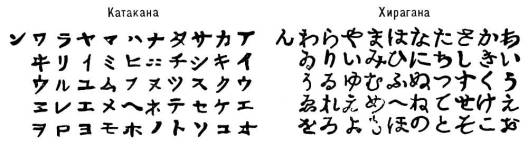 Катакана
ンワラヤマハナタサカア
ヰリイミヒニチシキイ
ウルユムフヌツスクウ
ヱレエメヘネテセケエ
ヲロヨモホノトソコオ
Хирагана
んわらやまはなたさかあ
ゐりいみひにちしきい
うるゆむふぬつすくう
ゑれえめへねてせけえ
をろよもほのとそこお